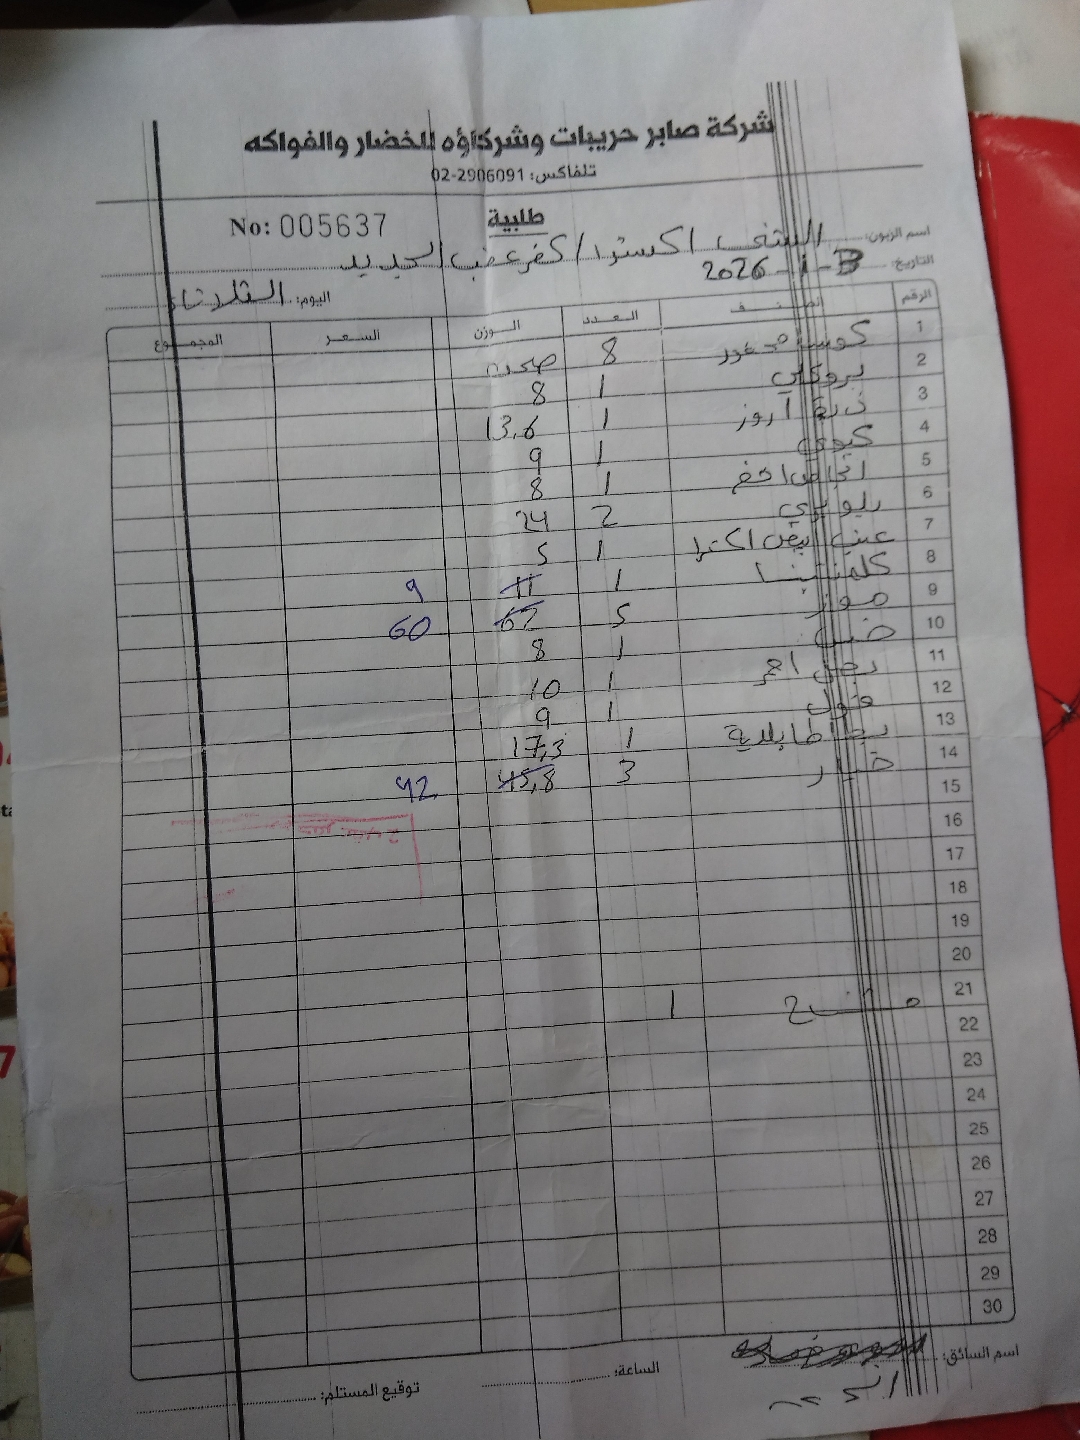 شركة صابر حريبات وشركاؤه للخضار والفواكه
تلفاكس: 02-2906091
طلبية
No: 005637
اسم الزبون: الشني اكسترا / كفر عقب الجديد
التاريخ: 2026-1-13
اليوم: الثلاثاء
الرقم الصنف العدد الوزن السعر المجموع
1 كوسا محفور 8 صحن
2 بروكلي 1 8
3 ذرة 1 13,6
4 كيوي 1 9
5 اجاص اخضر 1 8
6 بلو بري 2 24
7 عنب ابيض اكسترا 1 5
8 كلمنتينا 1 11 9
9 موز 5 62 60
10 خس 1 8
11 بصل احمر 1 10
12 فول 1 9
13 بطاطا بلدية 1 17,3
14 خيار 3 45,8 42
15
16
17
18
19
20
21 1
22
23
24
25
26
27
28
29
30
اسم السائق:
الساعة:
توقيع المستلم: